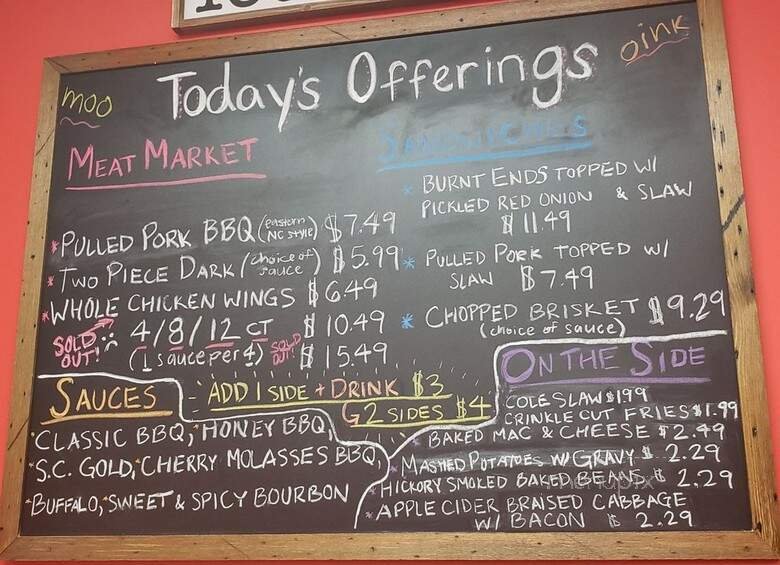 moo
Today's Offerings
oink
MEAT MARKET
*PULLED PORK BBQ (eastern NC style) $7.49
*TWO PIECE DARK (choice of sauce) $5.99
*WHOLE CHICKEN WINGS $6.49
4/8/12 CT $10.49
(1 sauce per 4) $15.49
SOLD OUT!
SOLD OUT!
SANDWICHES
* BURNT ENDS TOPPED W/
PICKLED RED ONION & SLAW
$11.49
* PULLED PORK TOPPED W/
SLAW $7.49
* CHOPPED BRISKET $9.29
(choice of sauce)
SAUCES
*CLASSIC BBQ, *HONEY BBQ,
*S.C. GOLD, *CHERRY MOLASSES BBQ,
*BUFFALO, *SWEET & SPICY BOURBON
ADD 1 SIDE + DRINK $3
2 SIDES $4
ON THE SIDE
COLE SLAW $1.99
CRINKLE CUT FRIES $1.99
* BAKED MAC & CHEESE $2.49
* MASHED POTATOES W/ GRAVY $2.29
* HICKORY SMOKED BAKED BEANS $2.29
* APPLE CIDER BRAISED CABBAGE
W/ BACON $2.29